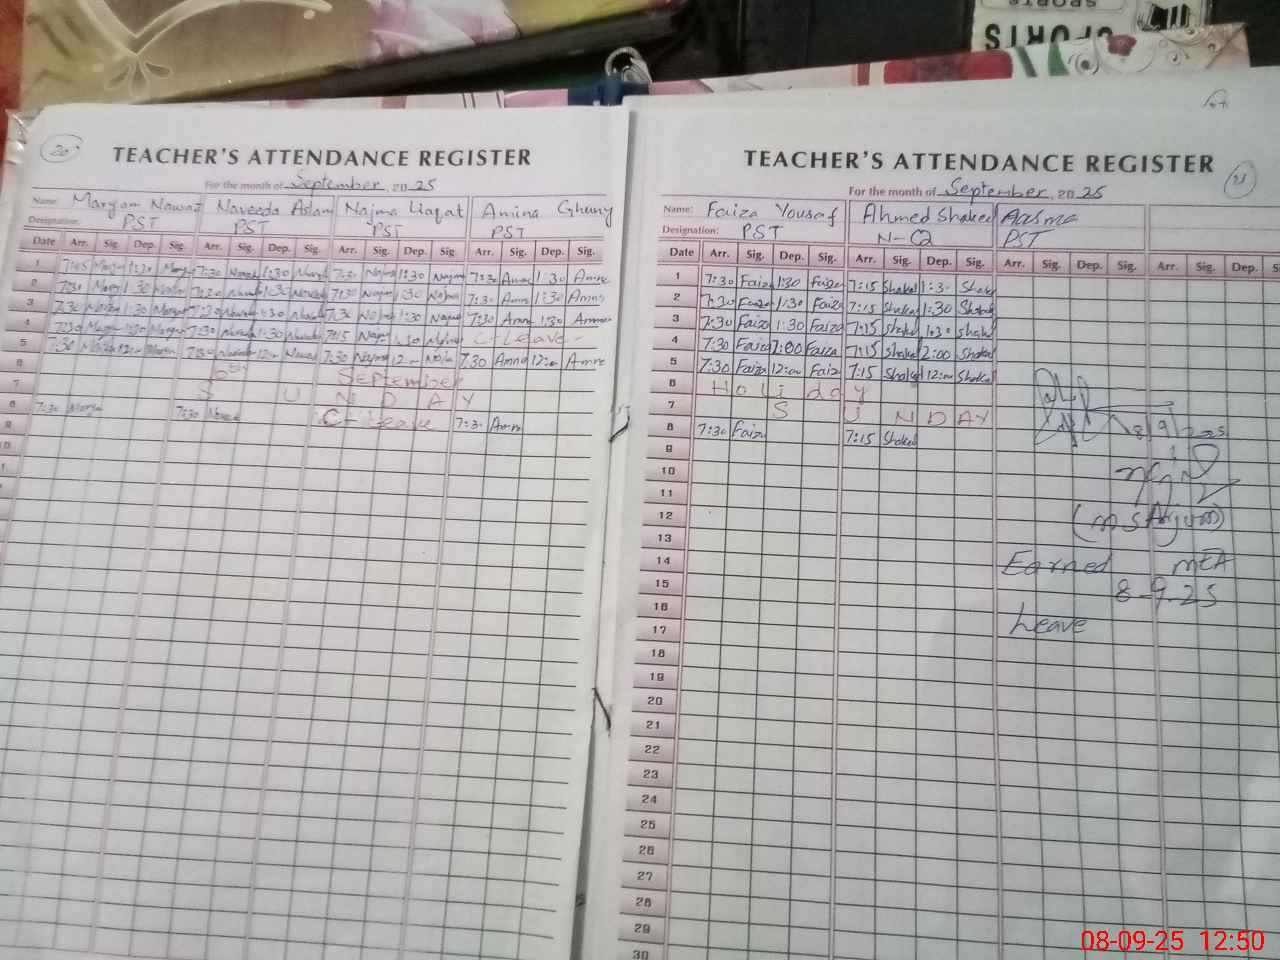 SPORTS
20
TEACHER'S ATTENDANCE REGISTER
For the month of September 2025
Name: Maryam Nawaz Naveeda Aslam Najma Liaqat Amina Ghuny
Designation: PST PST PST PST
Date Arr. Sig. Dep. Sig. Arr. Sig. Dep. Sig. Arr. Sig. Dep. Sig. Arr. Sig. Dep. Sig.
1 7:45 1:30 7:30 1:30 7:30 Najma 1:30 Najma 7:30 Amna 1:30 Amna
2 7:30 1:30 7:30 1:30 7:30 Najma 1:30 Najma 7:30 Amna 1:30 Amna
3 7:30 1:30 7:30 1:30 7:30 Najma 1:30 Najma 7:30 Amna 1:30 Amna
4 7:30 1:30 7:30 1:30 7:15 Najma 1:30 Najma C-Leave-
5 7:30 12:00 7:30 12:00 7:30 Najma 12:00 Najma 7:30 Amna 12:00 Amna
6 6th September
7 S U N D A Y
8 7:30 7:30 C-Leave 7:30 Amna
9
10
21
TEACHER'S ATTENDANCE REGISTER
For the month of September 2025
Name: Faiza Yousaf Ahmed Shakeel Aasma
Designation: PST N-Q PST
Date Arr. Sig. Dep. Sig. Arr. Sig. Dep. Sig. Arr. Sig. Dep. Sig. Arr. Sig. Dep.
1 7:30 Faiza 1:30 Faiza 7:15 Shakeel 1:30 Shakeel
2 7:30 Faiza 1:30 Faiza 7:15 Shakeel 1:30 Shakeel
3 7:30 Faiza 1:30 Faiza 7:15 Shakeel 1:30 Shakeel
4 7:30 Faiza 2:00 Faiza 7:15 Shakeel 2:00 Shakeel
5 7:30 Faiza 12:00 Faiza 7:15 Shakeel 12:00 Shakeel
6 Holiday
7 S U N D A Y
8 7:30 Faiza 7:15 Shakeel 8/9/2025
9
10
11
12 (M S Anjum)
13
14 Earned MEA
15 8-9-25
16 Leave
17
18
19
20
21
22
23
24
25
26
27
28
29
30
08-09-25 12:50